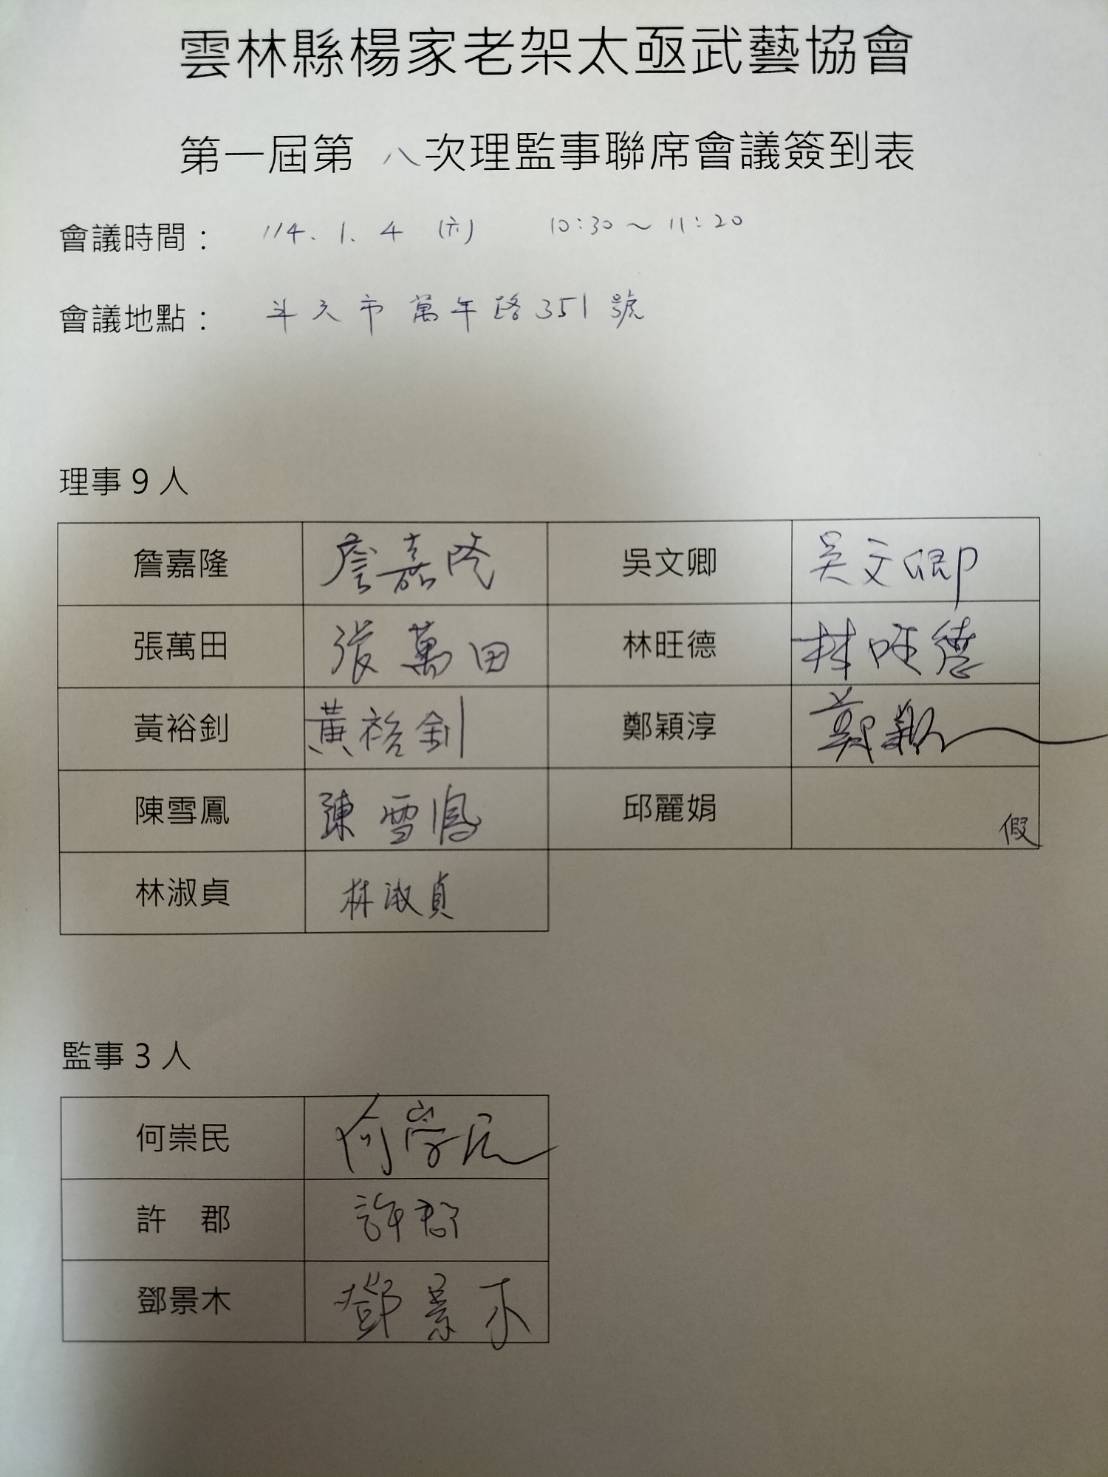 雲林縣楊家老架太亟武藝協會
第一屆第 八次理監事聯席會議簽到表
會議時間： 114. 1. 4 (六) 10:30～11:20
會議地點： 斗六市萬年路351號
理事 9 人
詹嘉隆 詹嘉隆 吳文卿 吳文卿
張萬田 張萬田 林旺德 林旺德
黃裕釗 黃裕釗 鄭穎淳 鄭穎
陳雪鳳 陳雪鳳 邱麗娟 假
林淑貞 林淑貞
監事 3 人
何崇民 何崇民
許 郡 許郡
鄧景木 鄧景木